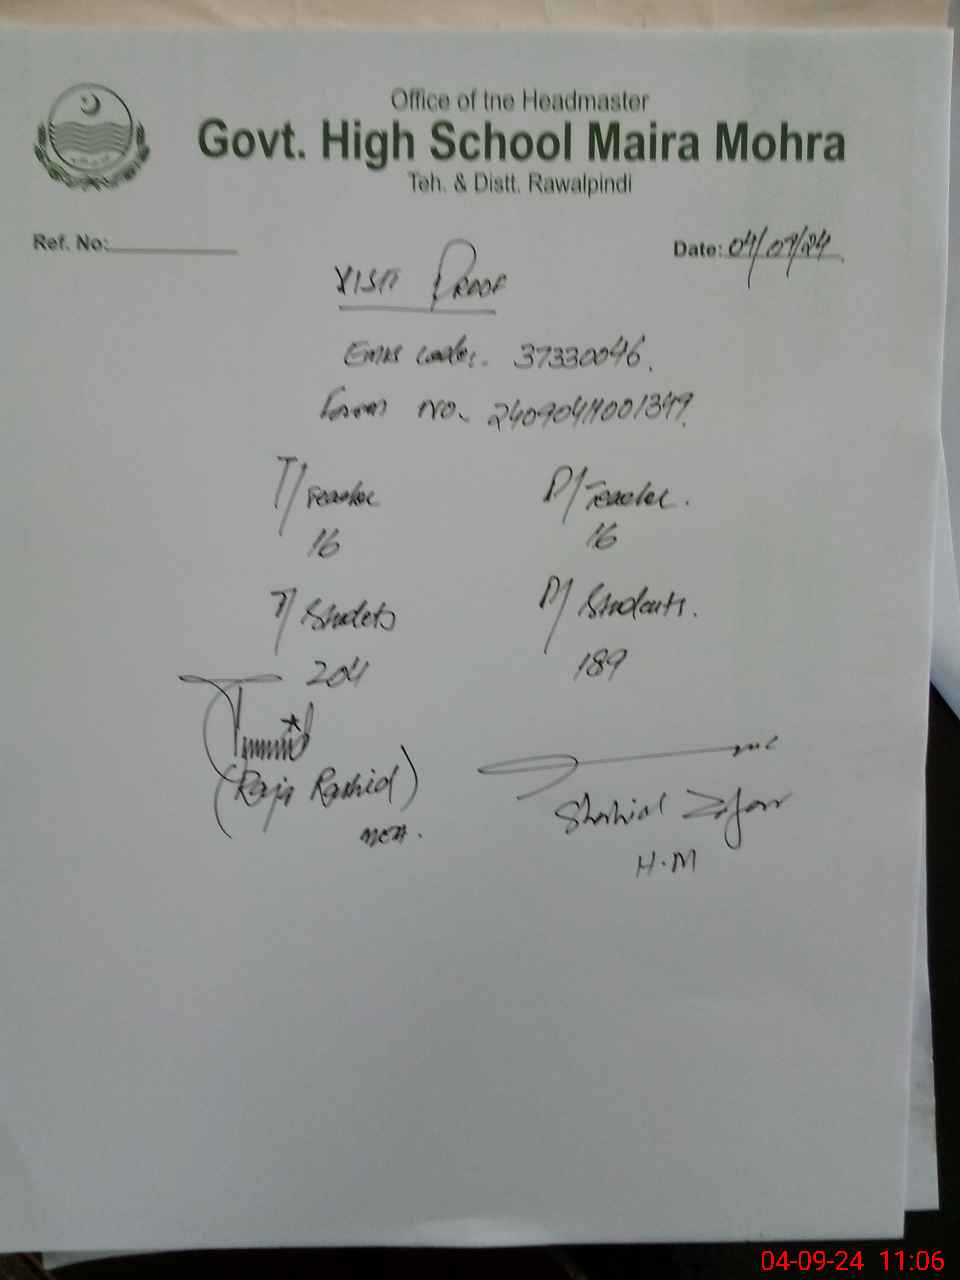 Office of the Headmaster
Govt. High School Maira Mohra
Teh. & Distt. Rawalpindi
Ref. No: Date: 04/09/24
VISIT PROOF
Emis code: 37330046.
Form no. 2409041001349.
T/Teacher P/Teacher.
16 16
T/Studets P/Students.
204 189
(Raja Rashid)
MEA.
Shahid Zafar
H.M
04-09-24 11:06